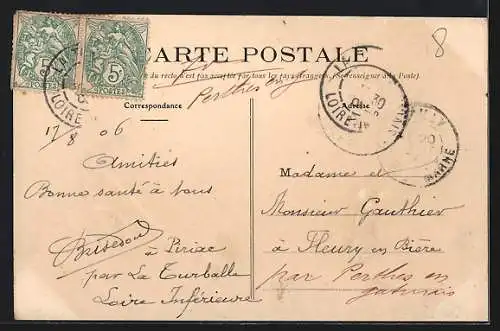 8
CARTE POSTALE
du recto n'est pas accepté par tous les pays étrangers. (Se renseigner à la Poste).
Perthes en
Correspondance
Adresse
5c 5c
POSTES POSTES
LOIRE
LOIRE
MARNE
17/8 06
Amitiés
Bonne santé à tous
à Piriac
par La Turballe
Loire Inférieure
Madame et
Monsieur Gauthier
à Fleury en Bière
par Perthes en
gatinais